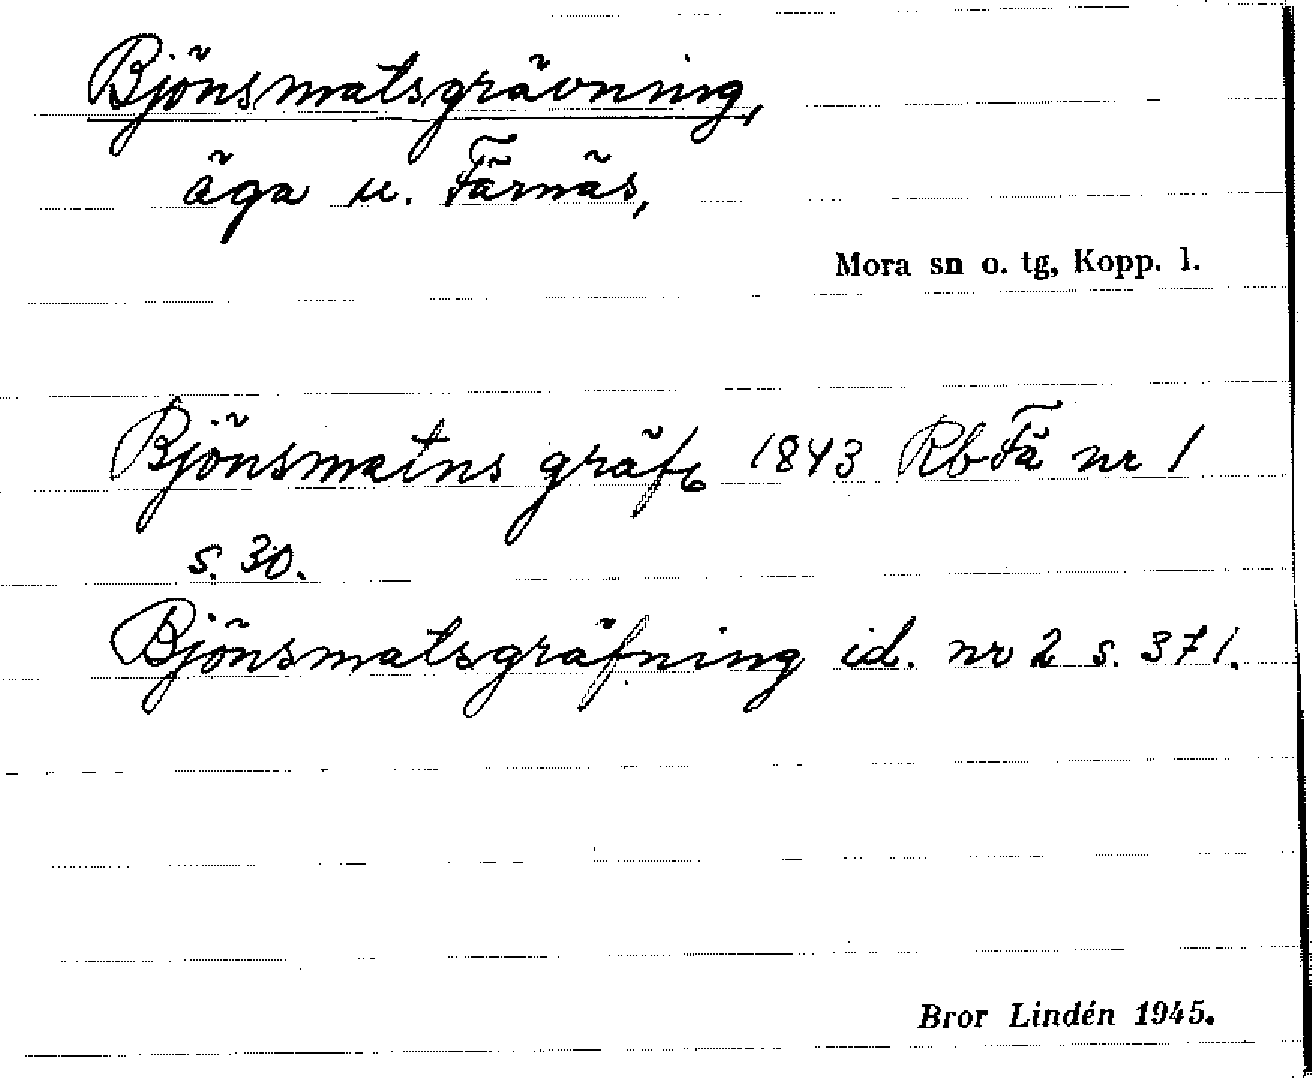 Bjönsmatsgrävning,
äga u. Färnäs,
Mora sn o. tg, Kopp. l.
Bjönsmatns gräfn 1843 RbFä nr 1
s. 30.
Bjönsmatsgräfning id. nr 2 s. 371.
Bror Lindén 1945.